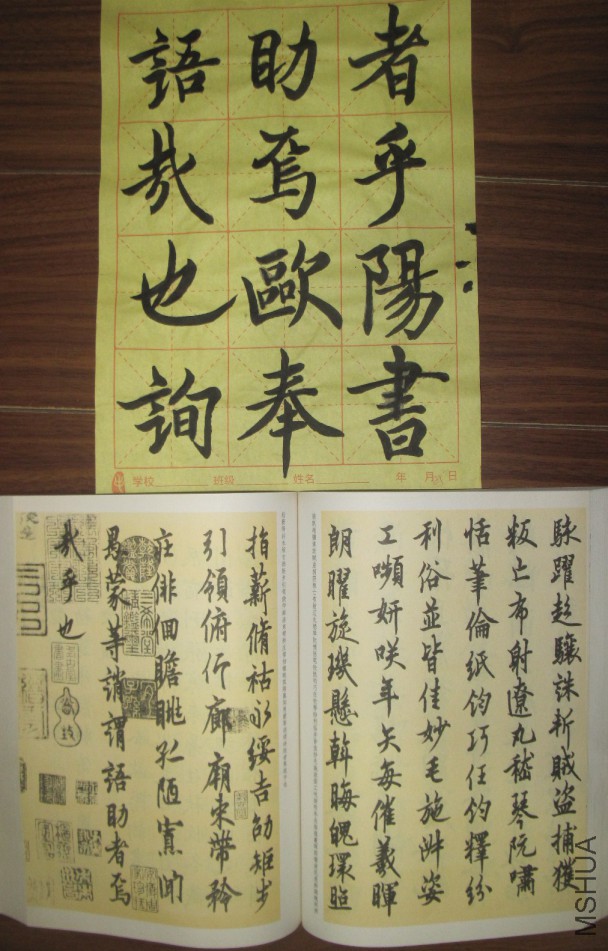 語助者
哉焉乎
也歐陽
詢奉書
学校 班级 姓名 年 月 日
駭躍超驤誅斬賊盜捕獲
叛亡布射遼丸嵇琴阮嘯
恬筆倫紙鈞巧任釣釋紛
利俗並皆佳妙毛施淑姿
工嚬妍咲年矢每催羲暉
朗曜旋璣懸斡晦魄環照
指薪脩祜永綏吉劭矩步
引領俯仰廊廟束帶矜
莊俳佪瞻眺孤陋寡聞
愚蒙等誚謂語助者焉
哉乎也
MSHUA